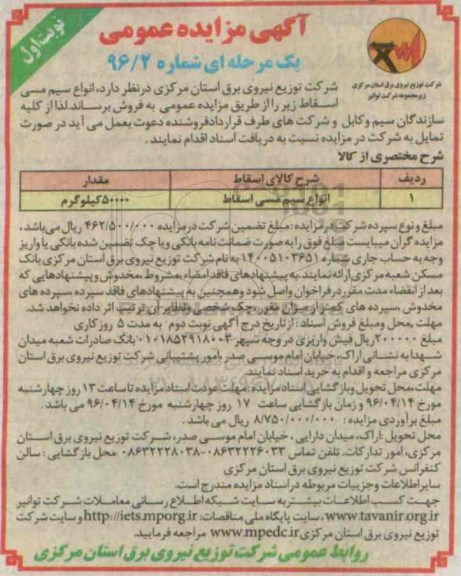 نوبت اول
آگهی مزایده عمومی
یک مرحله ای شماره ۹۶/۲
شرکت توزیع نیروی برق استان مرکزی
زیرمجموعه شرکت توانیر
شرکت توزیع نیروی برق استان مرکزی درنظر دارد، انواع سیم مسی
اسقاط زیر را از طریق مزایده عمومی به فروش برساند. لذا از کلیه
سازندگان سیم و کابل و شرکت های طرف قرارداد فروشنده دعوت بعمل می آید در صورت
تمایل به شرکت در مزایده نسبت به دریافت اسناد اقدام نمایند.
شرح مختصری از کالا
ردیف شرح کالای اسقاط مقدار
۱ انواع سیم مسی اسقاط ۵۰۰۰۰کیلوگرم
مبلغ و نوع سپرده شرکت در مزایده : مبلغ تضمین شرکت در مزایده ۴۶۲/۵۰۰/۰۰۰ ریال می باشد،
مزایده گران میبایست مبلغ فوق را به صورت ضمانت نامه بانکی و یا چک تضمین شده بانکی یا واریز
وجه به حساب جاری شماره ۱۴۰۰۵۱۰۳۶۵۱ به نام شرکت توزیع نیروی برق استان مرکزی بانک
مسکن شعبه مرکزی ارائه نمایند. به پیشنهادهای فاقد امضاء، مشروط، مخدوش و پیشنهادهایی که
بعد از انقضاء مدت مقرر در فراخوان واصل شود و همچنین به پیشنهادهای فاقد سپرده، سپرده های
مخدوش، سپرده های کمتر از میزان مقرر، چک شخصی و نظایر آن ترتیب اثر داده نخواهد شد.
مهلت، محل و مبلغ فروش اسناد : از تاریخ درج آگهی نوبت دوم به مدت ۵ روز کاری
مبلغ ۲۰۰۰۰۰ ریال فیش واریزی در وجه سپهر ۰۱۰۱۸۵۲۹۱۸۰۰۳ بانک صادرات شعبه میدان
شهدا به نشانی اراک، خیابان امام موسی صدر، امور پشتیبانی شرکت توزیع نیروی برق استان
مرکزی مراجعه و اقدام به خرید اسناد نمایند.
مهلت، محل تحویل و بازگشایی اسناد مزایده: مهلت عودت اسناد مزایده تا ساعت ۱۳ روز چهارشنبه
مورخ ۹۶/۰۴/۱۴ و زمان بازگشایی ساعت ۱۷ روز چهارشنبه مورخ ۹۶/۰۴/۱۴ می باشد.
مبلغ برآوردی مزایده : ۸/۷۵۰/۰۰۰/۰۰۰ ریال می باشد.
محل تحویل :اراک، میدان دارایی، خیابان امام موسی صدر، شرکت توزیع نیروی برق استان
مرکزی، امور تدارکات. تلفن تماس ۰۸۶۳۲۲۲۶۰۳۳-۰۸۶۳۲۲۲۸۰۳۸ محل بازگشایی : سالن
کنفرانس شرکت توزیع نیروی برق استان مرکزی
سایر اطلاعات و جزییات مربوطه در اسناد مزایده مندرج است.
جهت کسب اطلاعات بیشتر به سایت شبکه اطلاع رسانی معاملات شرکت توانیر
www.tavanir.org.ir، سایت پایگاه ملی مناقصات: http://iets.mporg.ir و سایت شرکت
توزیع نیروی برق استان مرکزی www.mpedc.ir مراجعه فرمایید.
روابط عمومی شرکت توزیع نیروی برق استان مرکزی